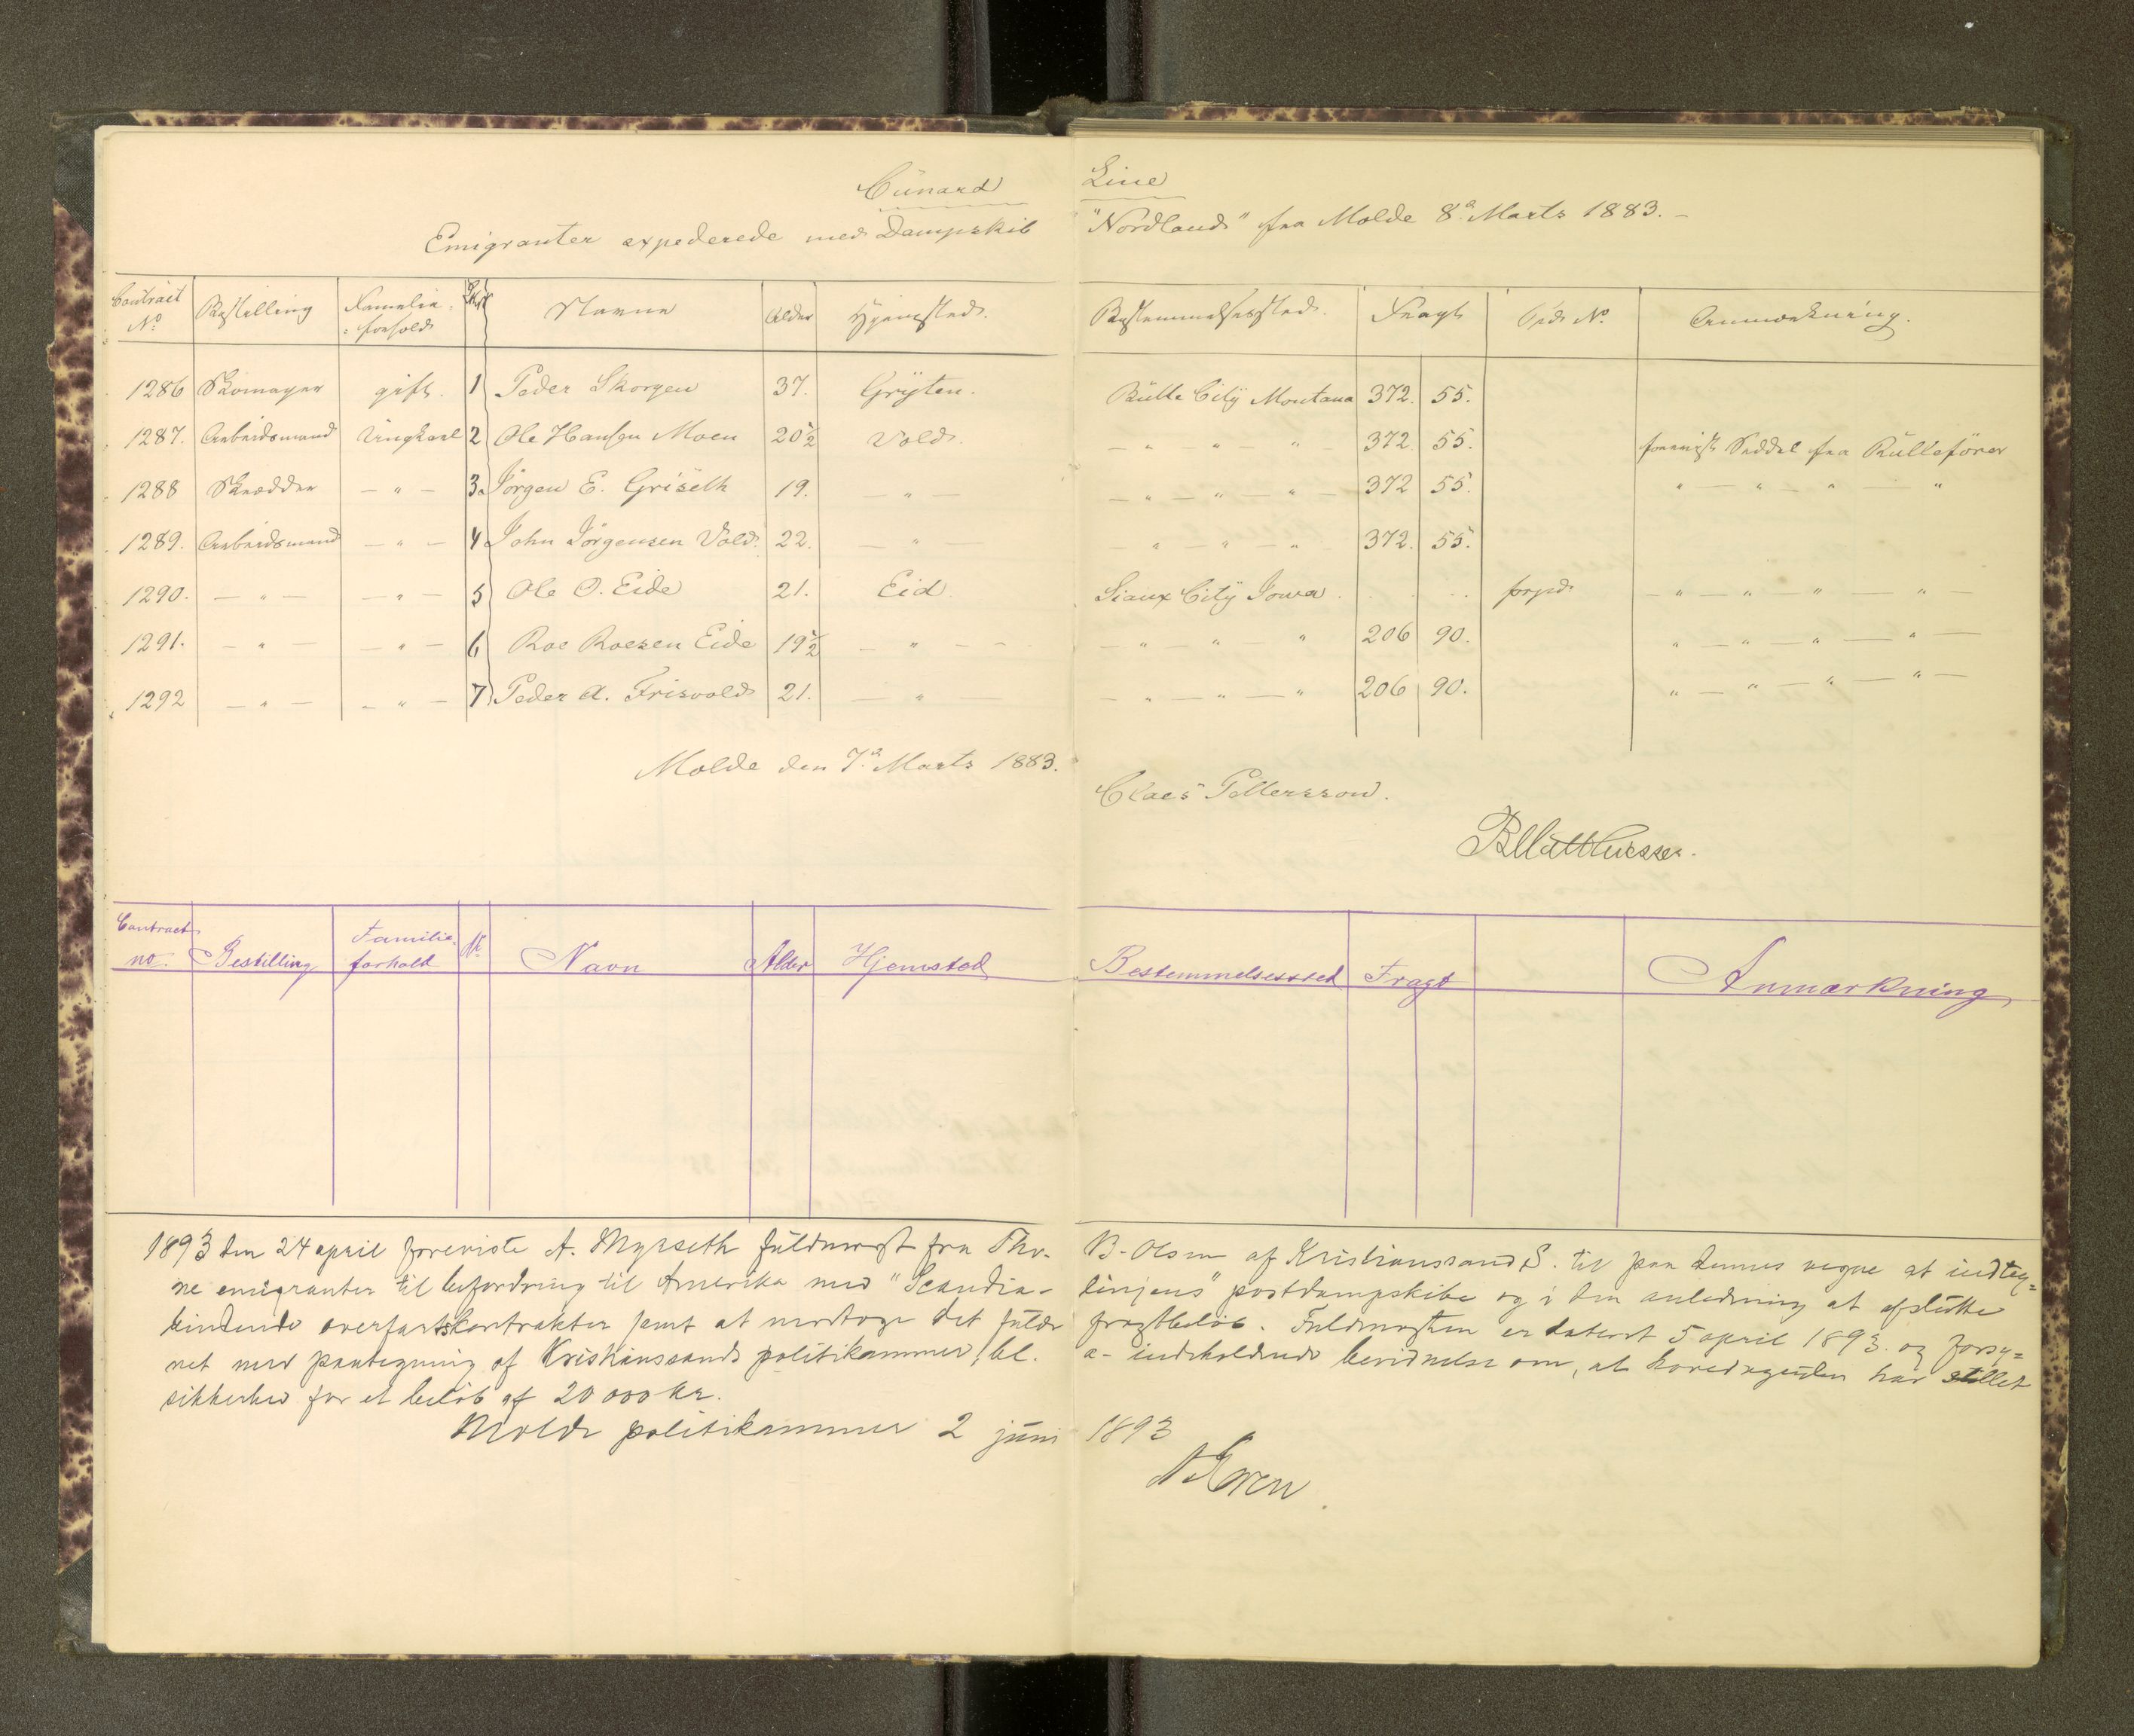 Cunard Line
Emigranter expederede med Dampskib "Nordland" fra Molde 8de Marts 1883. –
Contract No. Bestilling Familie-forhold Navne Alder Hjemsted. Bestemmelsessted. Fragt No. Anmærkning.
1286 Skomager gift. 1 Peder Skorgen 37. Gryten. Butte City Montana 372. 55.
1287. Arbeidsmand Ungkarl 2 Ole Hansen Moen 20 1/2 Vold. – " – " – " 372 55. forevist Seddel fra Rullefører
1288 Skrædder – " – 3 Jörgen E. Griseth 19. – " – – " – " – " – 372 55. " – " – " – "
1289. Arbeidsmand – " – 4 John Jörgensen Vold. 22. – " – " – " – " 372. 55.
1290. – " – – " – 5 Ole O. Eide 21. Eid Sioux City Iowa . . . . . prpd. – " – " – " – " –
1291. – " – – " – 6 Roe Roesen Eide 19 1/2 – " – – – " – " – " 206 90. " – " – " – " –
1292 – " – – " – 7 Peder A. Frisvold 21. – " – – " – " – " 206 90. " – " – " – " –
Molde den 7de Marts 1883. Claes Pettersson.
Contract no. Bestilling Familie-forhold No. Navn Alder Hjemsted Bestemmelsessted Fragt Anmærkning
1893 den 24 april foreviste A. Myrseth fuldmagt fra Thv. B. Olsen af Kristianssand S. til paa dennes vegne at indteg=
ne emigranter til befordring til Amerika med "Scandia- linjens" postdampskibe og i den anledning at afslutte
bindende overfartskontrakter samt at modtage det fulde fragtbeløb. Fuldmagten er dateret 5 april 1893. og forsy=
net med paategning af Kristianssands politikammer, bl. a. indeholdende bevidnelse om, at hovedagenten har stillet
sikkerhed for et beløb af 20 000 kr.
Molde politikammer 2 juni 1893